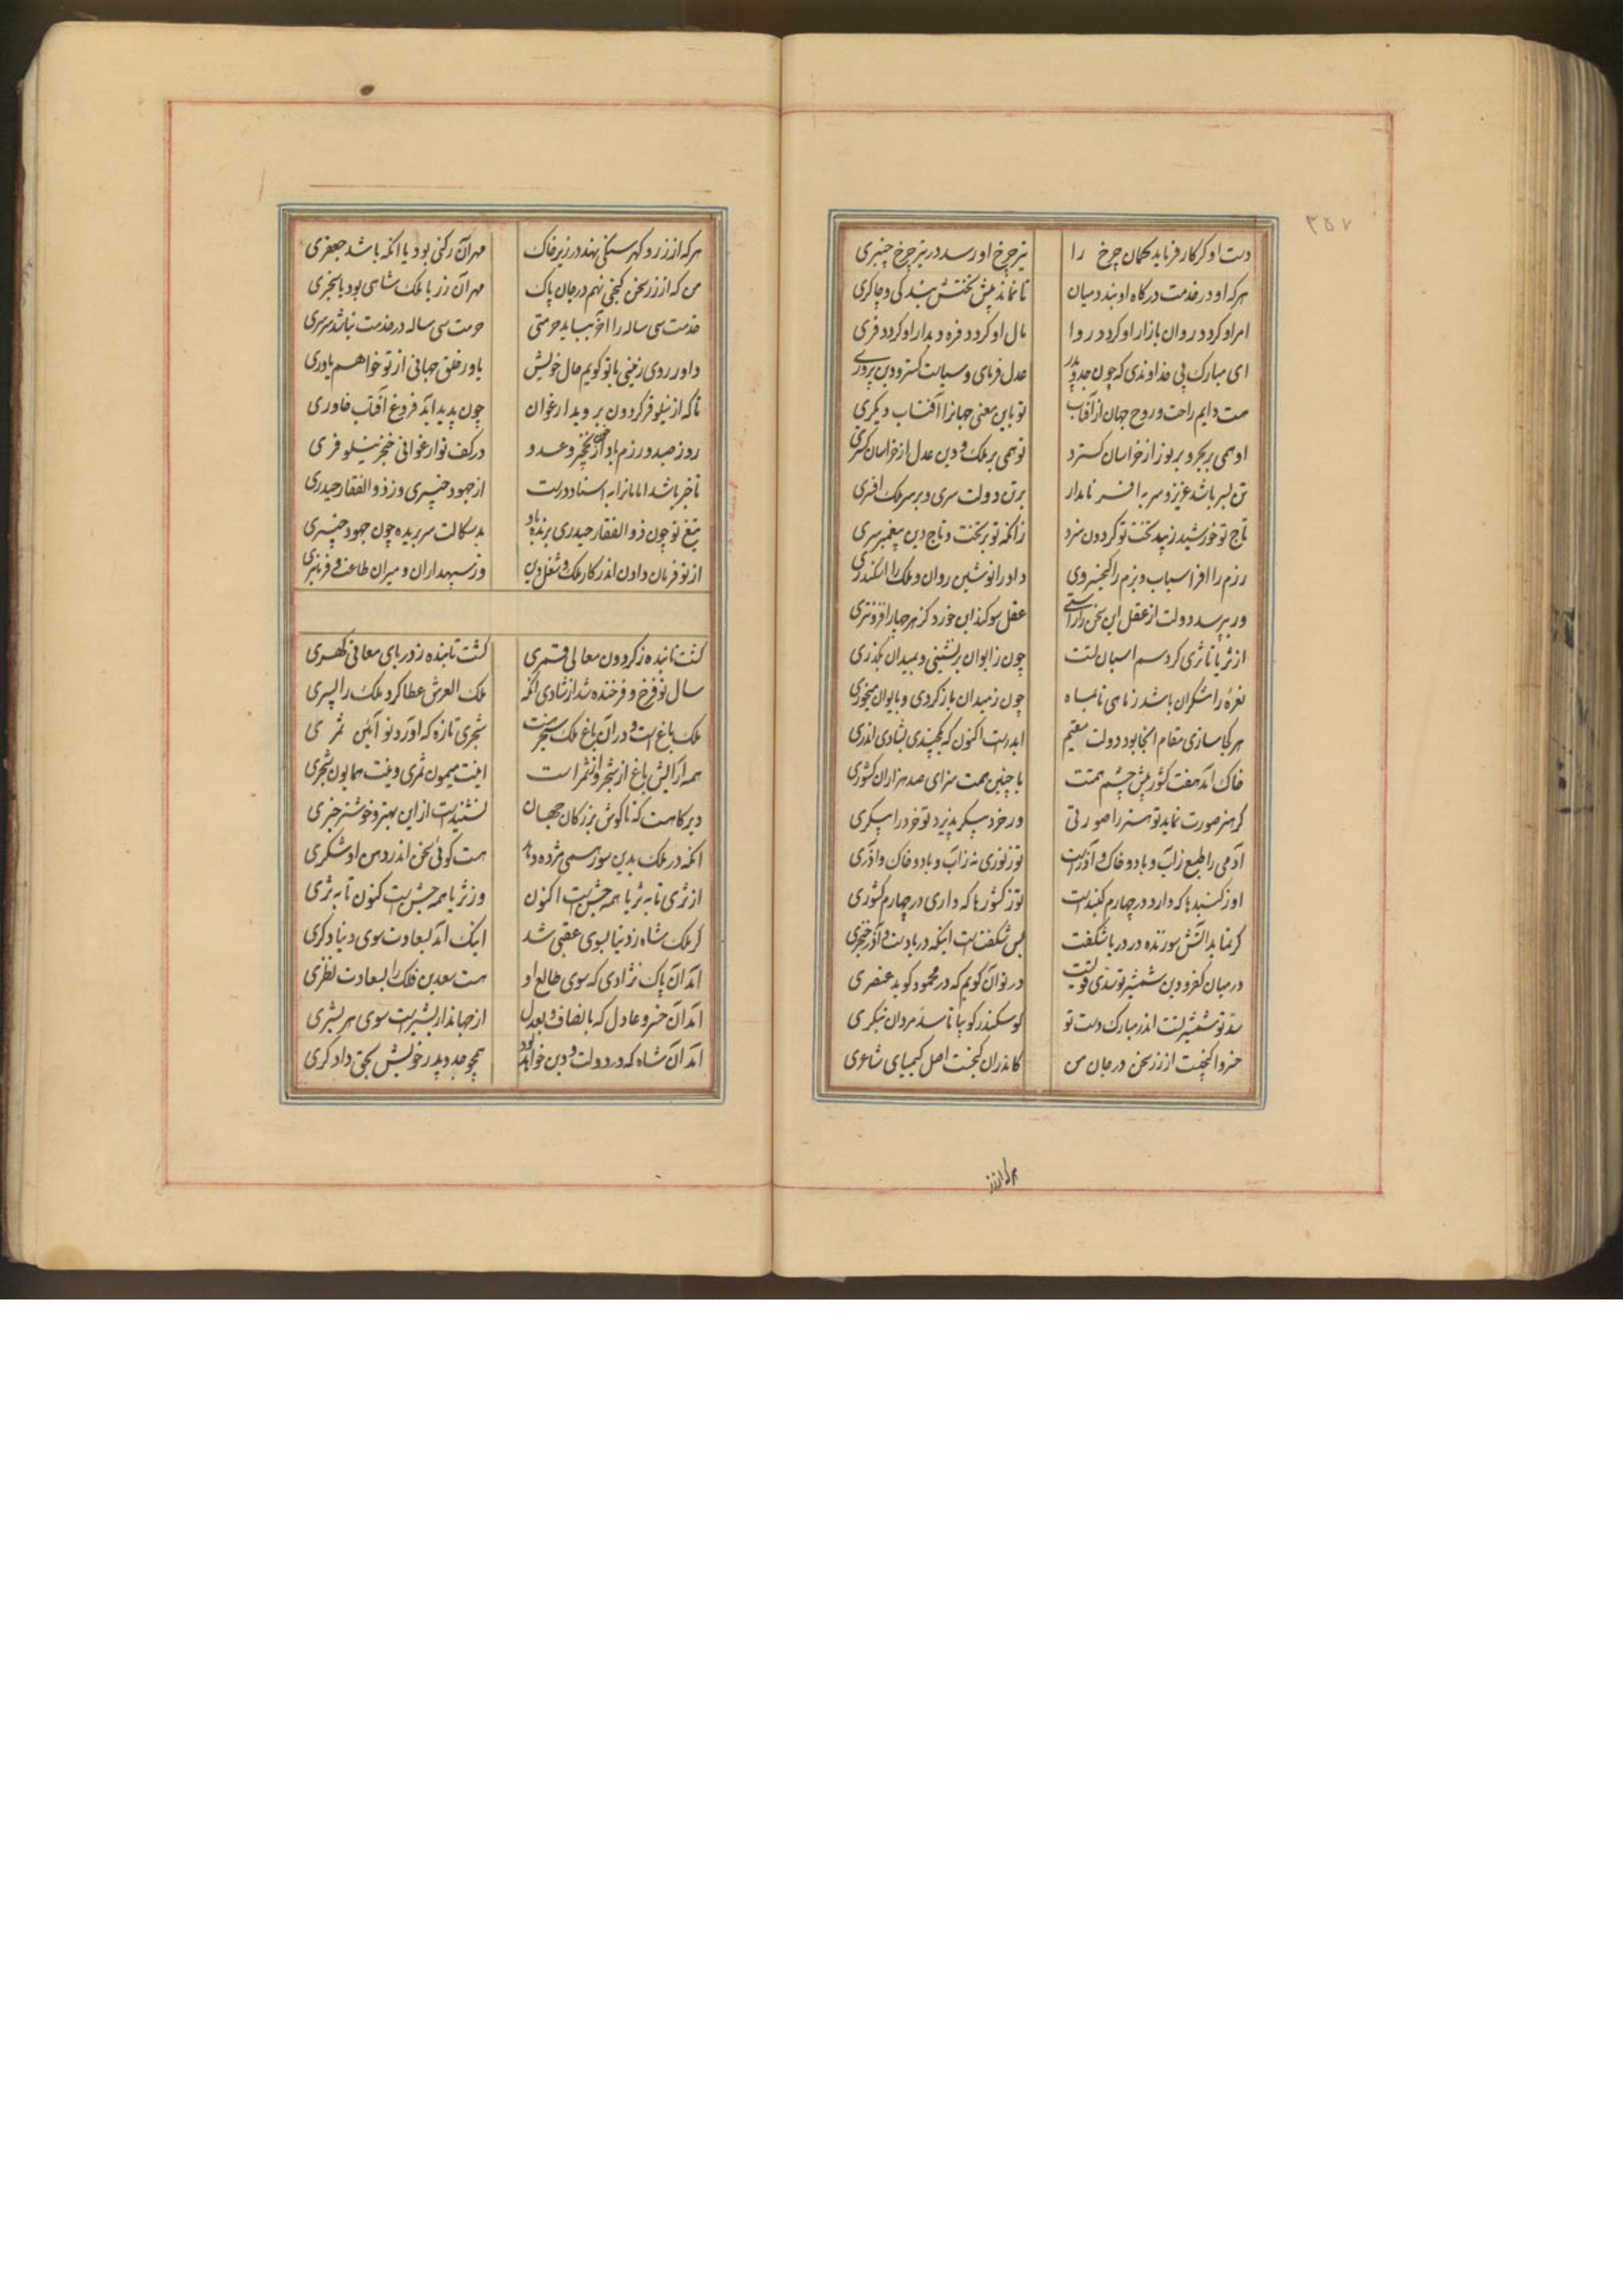 ۳۵۷
دست او کر کار فرماید کمان چرخ را تیر چرخ او رسد در تیر چرخ چنبری
هرکه او در خدمت درکاه او بندد میان تا نماند پیش تختش بندکی و چاکری
امر او کردد روان بازار او کردد روا مال او کردد فره دیدار او کردد فری
ای مبارک پی خداوندی که چون جد و پدر عدل فرمای و سیاست کستر و دین پروری
هست دایم راحت و روح جهان از آفتاب تو باین معنی جهانرا آفتاب دیکری
او همی بر بحر و بر نور از خراسان کسترد تو همی بر ملک و دین عدل از خراسان کستری
تن بسر باشد عزیز و سر به افسر نامدار بر تن دولت سری و بر سر ملک افسری
تاج تو خورشید زیبد تخت تو کردون سزد زانکه تو بر تخت و تاج دین پیغمبر سری
رزم را افراسیاب و بزم را کیخسروی داد را نوشین روان و ملک را اسکندری
ور بپرسد دولت از عقل این سخن را راستی عقل سوکند این خورد کز هر چهار افزونتری
از ثریا تا ثری کرد سم اسبان تست چون ز ایوان برنشینی و بمیدان بگذری
نعره رامشگران باشد ز ماهی تا بماه چون ز میدان باز کردی و بایوان میخوری
هر کجا سازی مقام آنجا بود دولت مقیم ایدرست اکنون که یکچندی بشادی ایدری
خاک آمد هفت کشور پیش چشم همتت با چنین همت سزای صد هزاران کشوری
کر هنر صورت نماید تو هنر را صورتی ور خرد پیکر پذیرد تو خرد را پیکری
آدمی را طبع ز آب و باد و خاک و آذرست تو ز نوری نه ز آب و باد و خاک و آذری
او ز کنبدها که دارد در چهارم کنبدست تو ز کشورها که داری در چهارم کشوری
کر نماید آتش سوزنده در دریا شکفت بس شکفتست اینکه دریا دست و آذر خنجری
در میان کفر و دین شمشیر تو سدی قویست در تو آن کویم که در محمود کوید عنصری
سد تو شمشیر تست اندر مبارک دست تو کو سکندر کو بیا تا سد مردان بنکری
خسروا کنجیست از زر سخن در جان من کاندران کنجست اصل کیمیای شاعری
هرکه از زر
هرکه از زر و کهر سنگی نهد در زیر خاک مهر آن رکنی بود یا آنکه باشد جعفری
من که از زر سخن کنجی نهم در جان پاک مهر آن زر یا ملک شاهی بود یا سنجری
خدمت سی ساله را آخر بباید حرمتی حرمت سی ساله در خدمت نباشد سرسری
داور روی زمینی با تو کویم حال خویش یاور خلق جهانی از تو خواهم یاوری
تا که از نیلوفر کردون بروید ارغوان چون پدید آید فروغ آفتاب خاوری
روز صید و رزم باد از خون نخچیر و عدو در کف تو ارغوانی خنجر نیلوفری
تا خبر باشد امامانرا به اسناد درست از جهود خیبری وز ذوالفقار حیدری
تیغ تو چون ذوالفقار حیدری برنده باد بدسکالت سر بریده چون جهود خیبری
از تو فرمان دادن اندر کار ملک و شغل دین وز سپهداران و میران طاعت و فرمانبری
کشت تابنده ز کردون معالی قمری کشت تابنده ز دریای معانی کهری
سال نو فرخ و فرخنده شد از شادی آنکه ملک العرش عطا کرد ملک را پسری
ملک باغست و در آن باغ ملک سنجرست شجری تازه که آورد نو آئین ثمری
همه آرایش باغ از شجر و از ثمر است اینت میمون ثمری وینت همایون شجری
دیر کاهست که تا کوش بزرکان جهان نشنیدست از این بهتر و خوشتر خبری
آنکه در ملک بدین سور همی مژده دهد هست کوئی سخن اندر دهن او شکری
از ثری تا به ثریا همه جشن است اکنون وز ثریا همه جشن است کنون تا به ثری
کر ملک شاه ز دنیا بسوی عقبی شد اینک آمد بسعادت سوی دنیا دکری
آمد آن پاک نژادی که سوی طالع او هست سعدین فلک را بسعادت نظری
آمد آن خسرو عادل که بانصاف و بعدل از جهاندار بشیرست سوی هر بشری
آمد آن شاه که در دولت و دین خواهد بود همچو جد و پدر خویش بحق دادکری